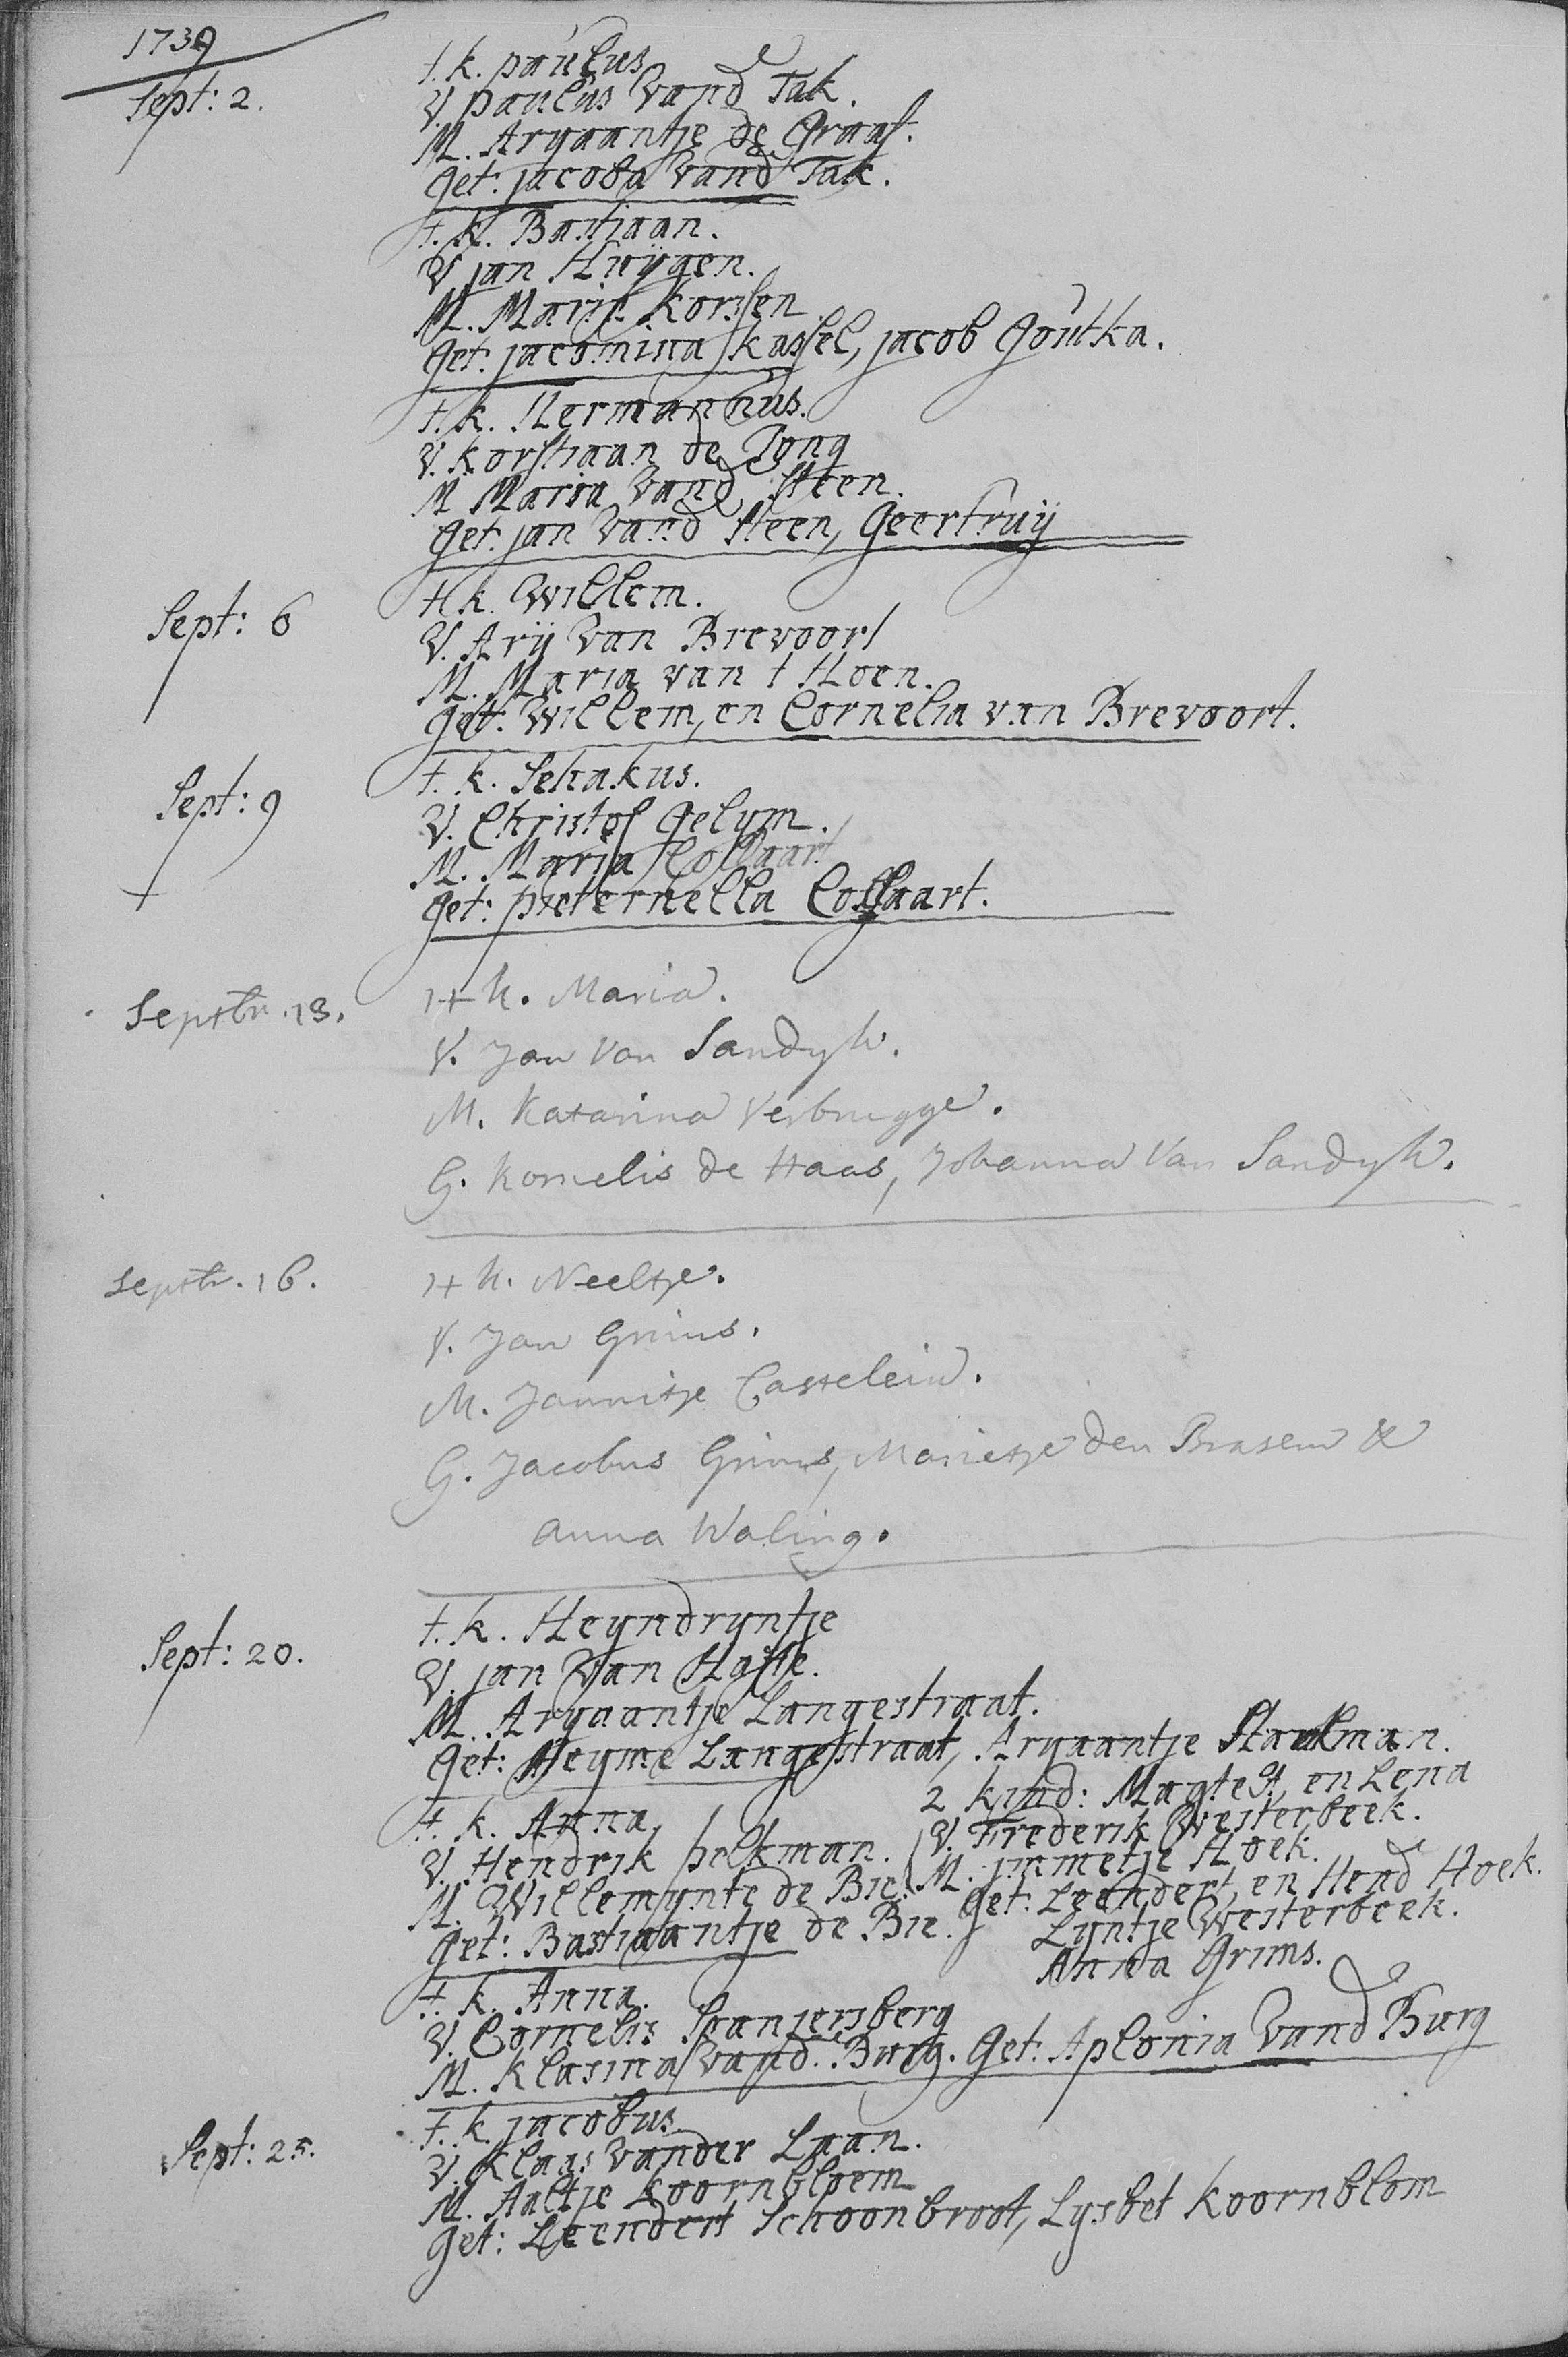 1739
Sept: 2.
t. k. paulus
V. paulus vand Tak.
M. Aryaantje de Graaf.
Get: jacoba vand Tak.
t. k. Bastiaan.
V jan Huijgen.
M. Marie Korssen
Get: jacomina Kassel, jacob Goutka.
t. k. Hermannus.
V. Korstiaan de Jong
M Maria vand Steen.
Get. jan vand Steen, Geertruij
Sept: 6
t k. Willem.
V. Arij van Brevoort
M. Maria van t Hoen.
Get: Willem, en Cornelia van Brevoort.
Sept: 9
t. k. Schakus.
V. Christof Gelym.
M. Maria Collaart
Get: pieternella Collaart.
Septbr. 13.
't k. Maria.
V. Jan Van Sandyk.
M. Katarina Verbrugge.
G. Kornelis de Haas, Johanna Van Sandyk.
Septbr. 16.
't k. Neeltje.
V. Jan Grims.
M. Jannitje Castelein.
G. Jacobus Grims, Marietje den Brasem &
Anna Waling.
Sept: 20.
t. k. Heyndryntje
V. jan van
M. Aryaantje Langestraat.
Get: Heyme Langestraat, Aryaantje
t. k. Anna.
V. Hendrik polkman.
M. Willemynte de Bie.
Get: Bastiaantje de Bie.
2 kind: Magtelt, en Lena
V. Frederik Westerbeek.
M. jmmetje Hoek.
Get: Leendert, en Hend Hoek.
Lyntje Westerbeek.
Anna Grims.
t. k. Anna.
V. Cornelis Spanjersberg
M. Klasina vand. Burg. Get: Aplonia vand Burg
Sept: 25.
t. k. jacobus
V. Klaas vander Laan.
M. Aaltje Koornbloem
Get: Leendert Schoonbroot, Lysbet Koornblom